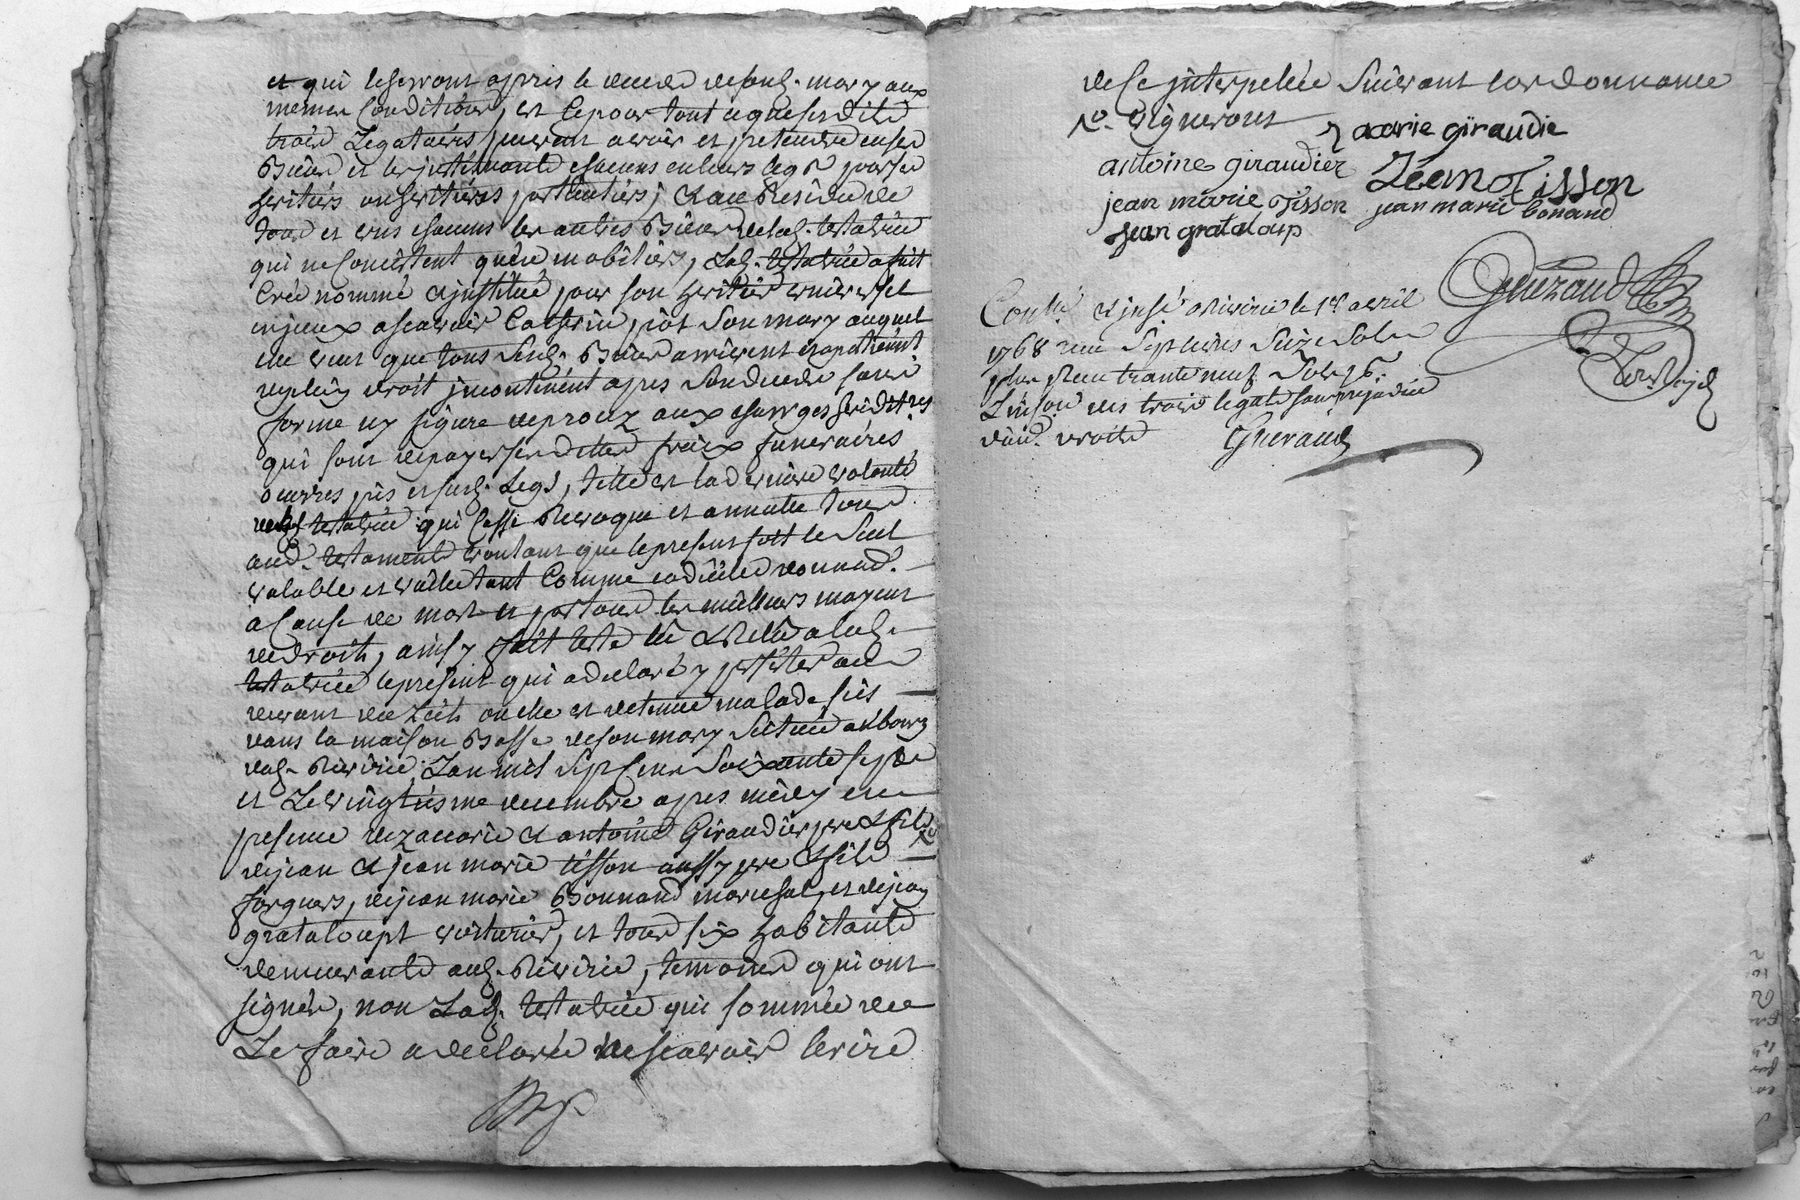 et qui leseront apres le deced desond. mary aux
memes Conditions, et ce pour tout ceque sesdits
trois Legataires peuvent avoir et pretendre enses
Biens et les instituants chacuns enleurs legs pour ses
heritiers particuliers; & au Residu de
tous et uns chacuns les autres Biens delad. testatrice
qui ne Consistent quén mobiliers, Lad. testatrice a fait
Créé nommé & institué pour son heritier universel
ascavoir Catherin piot Son mary auquel
elle veut que tous Sesd. Biens arrivent et apartienent
de plein droit incontinent apres Son deced sans
forme ny figure de procez aux charges
qui sont de payer ses dettes fraix funeraires
oeuvres pies et susd. Legs, telle est la derniere volonté
de lad. testatrice qui Casse Revoque et annulle tous
aud. testaments voulant que le present soit le Seul
valable et vaille tant Comme codicille donnaõn.
à Cause de mort et par tous les meilleurs moyens
de droit, ainsy fait testé lû & Relû a lad.
testatrice le present qui a declaré y persister au
devant où elle est detenue malade
dans la maison Basse deson mary Scituée au bourg
dud. Riverie; L'an mil Sept Cent Soixante sept
et Le vingtiesme decembre apres midy en
presence de zacarie & antoine Giraudier pere & fils
de jean & jean marie tisson aussy pere & fils
forgeurs, de jean marie Bonnand marechal, et de jean
grataloupt voiturier, et tous six habitants
demeurants aud. Riverie, temoins qui ont
signés, non Lad. testatrice qui sommée de
Le faire a declarée ne scavoir écrire
de Ce interpelée Suivant l'ordonnance
Vignerons
zacarie giraudie
antoine giraudier
Jean Tisson
jean marie tisson
jean marie bonand
jean grataloup
Gueraud
Contlé & insé a Riverie le 1er avril
1768 Recu Sept livres Seize Sols
plus Recu trante neuf Sols
L'insõn des trois legats sans prejudice
d'aud. droits
Gueraud